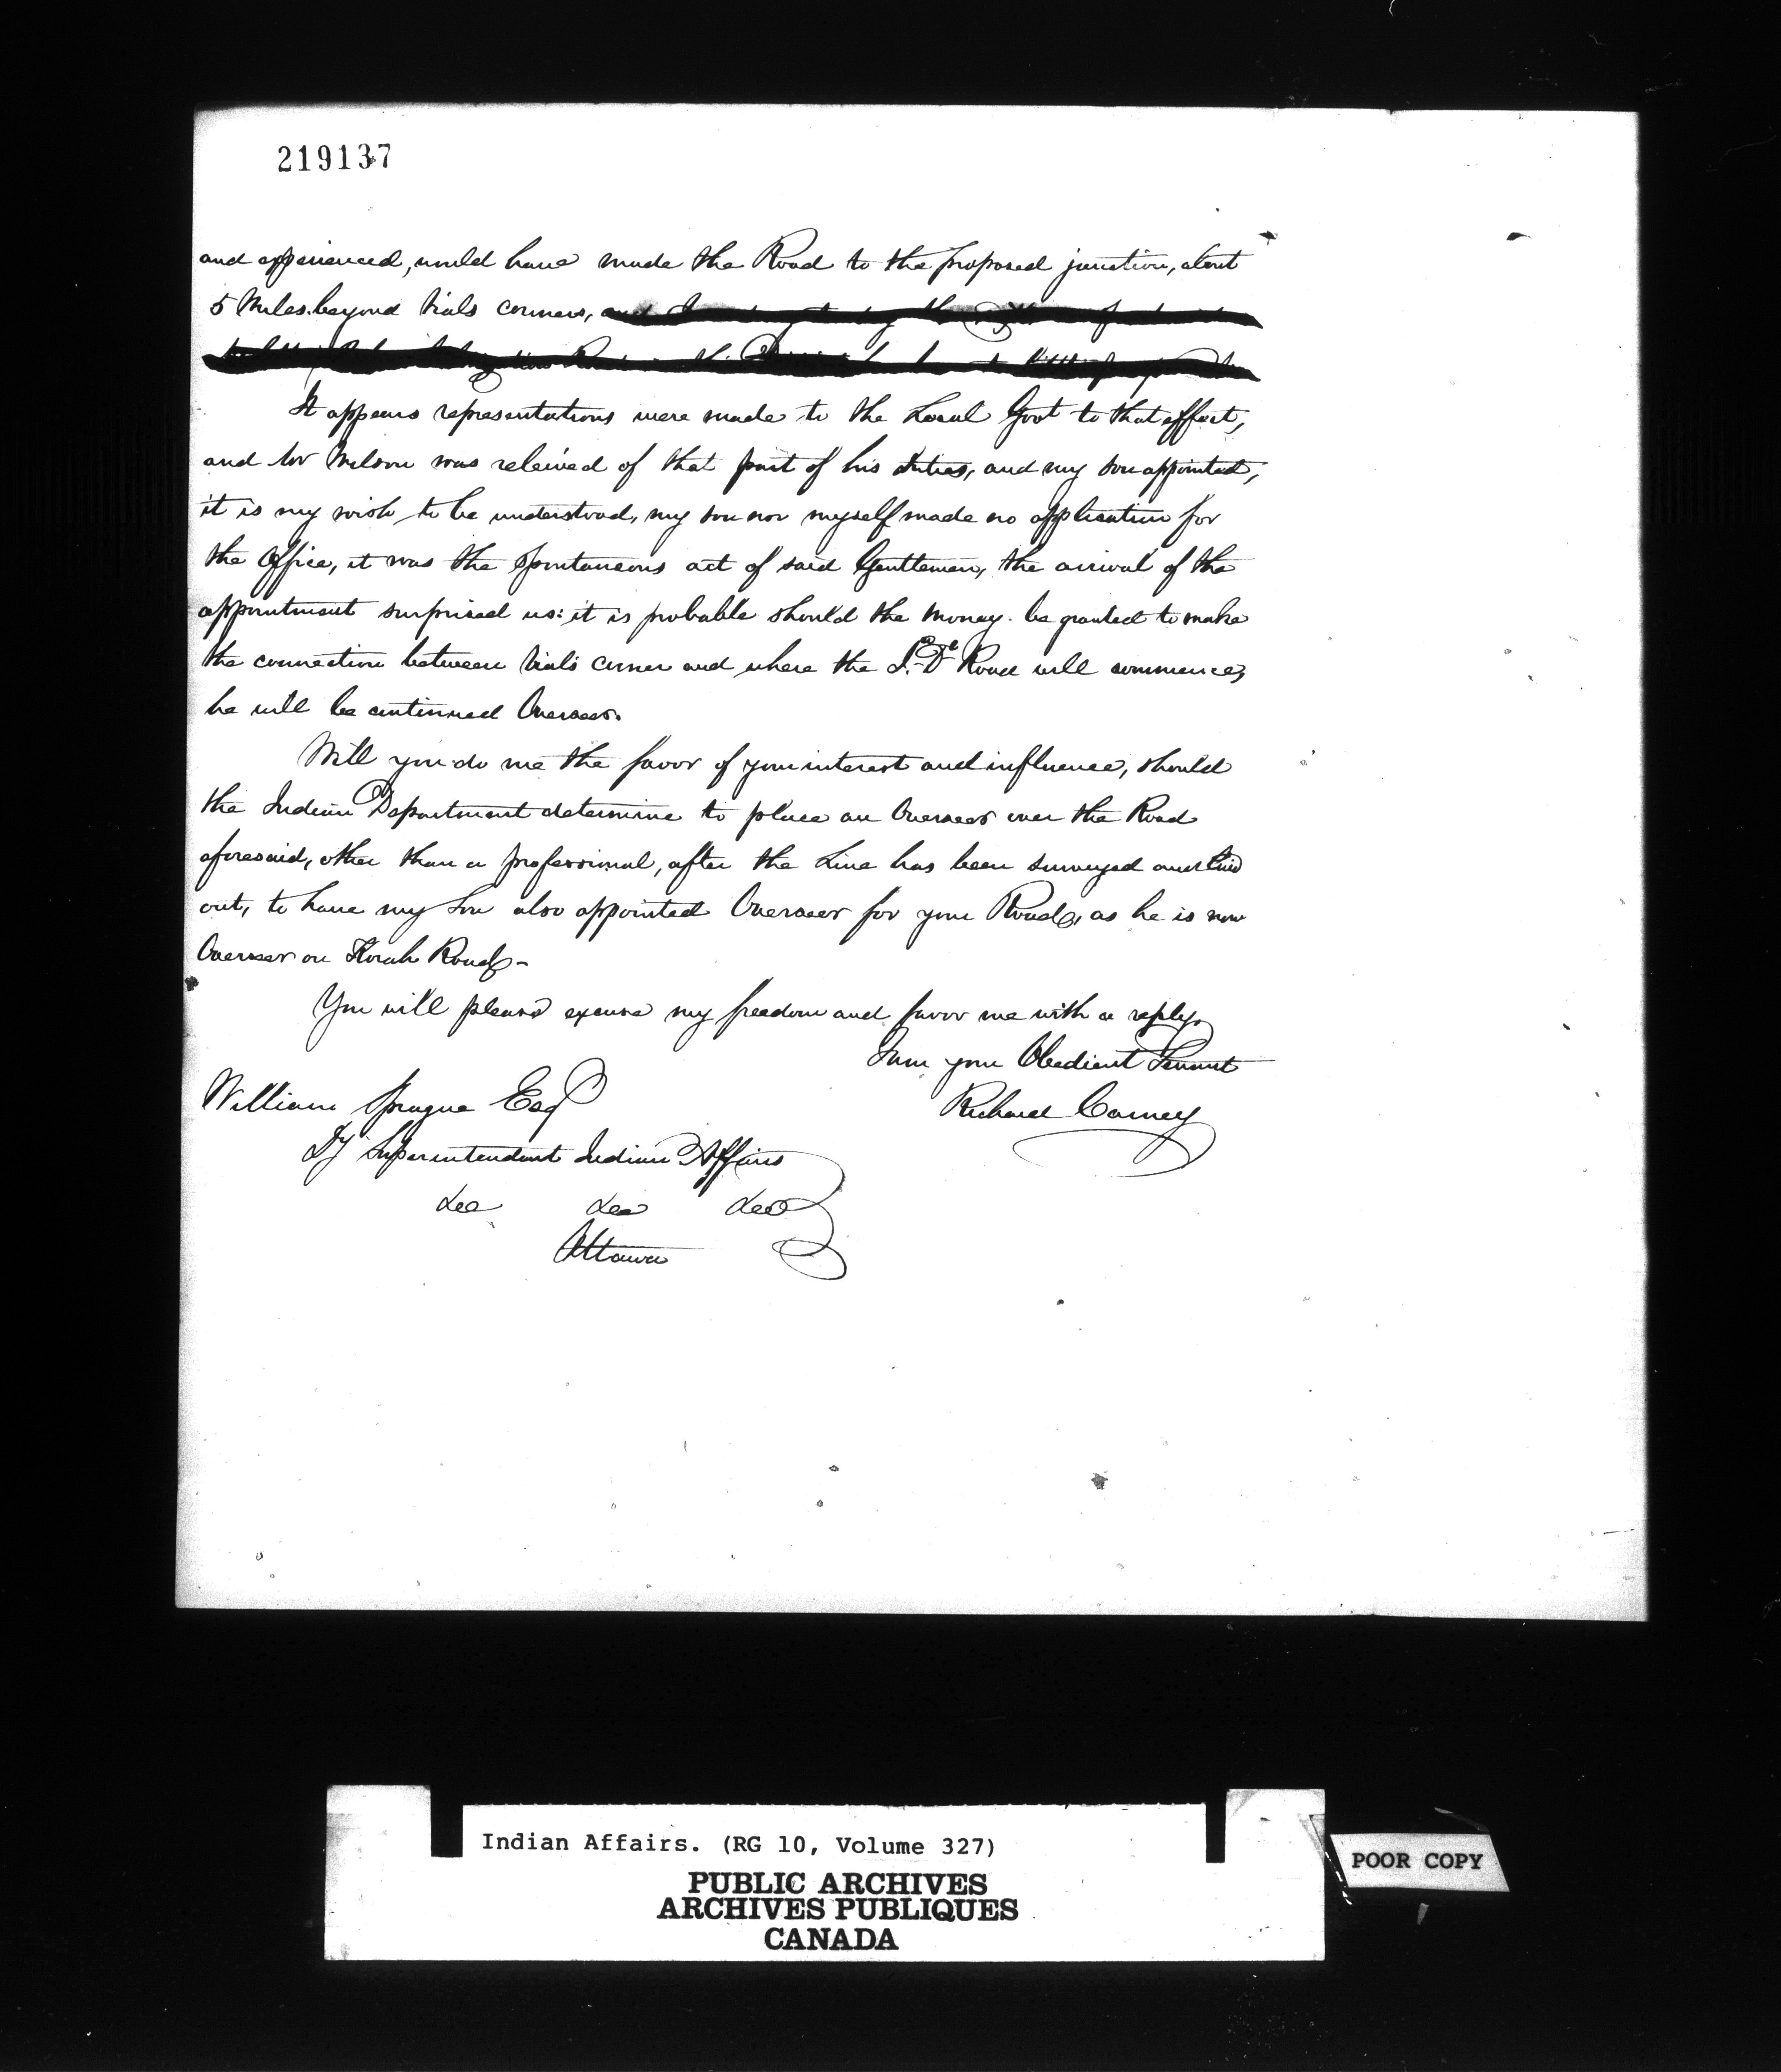 219137
and experienced, would have made the Road to the proposed junction, about
5 Miles beyond Vials corners,
It appears representations were made to the Local Govt to that effect,
and Mr Wilson was releived of that part of his duties, and my son appointed,
it is my wish to be understood, my son nor myself made no application for
the Office, it was the spontaneous act of said Gentlemen, the arrival of the
appointment surprised us: it is probable should the money be granted to make
the connection between Vials corner and where the Road will commence,
he will be continued Overseer.
Will you do me the favor of your interest and influence, should
the Indian Department determine to place an Overseer over the Road
aforesaid, other than a professional, after the Line has been surveyed and laid
out, to have my Son also appointed Overseer for your Road, as he is now
Overseer on Korah Road -
You will please excuse my freedom and favor me with a reply.
I am your Obedient Servant
Richard Carney
William Spragge Esq
Dy Superintendent Indian Affairs
&c &c &c
Ottawa
Indian Affairs. (RG 10, Volume 327)
PUBLIC ARCHIVES
ARCHIVES PUBLIQUES
CANADA
POOR COPY